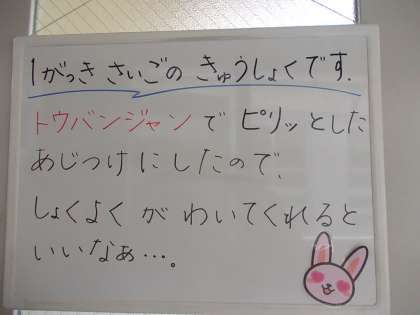 1がっき さいごの きゅうしょくです.
トウバンジャンで ピリッとした
あじつけにしたので、
しょくよくが わいてくれると
いいなぁ…。